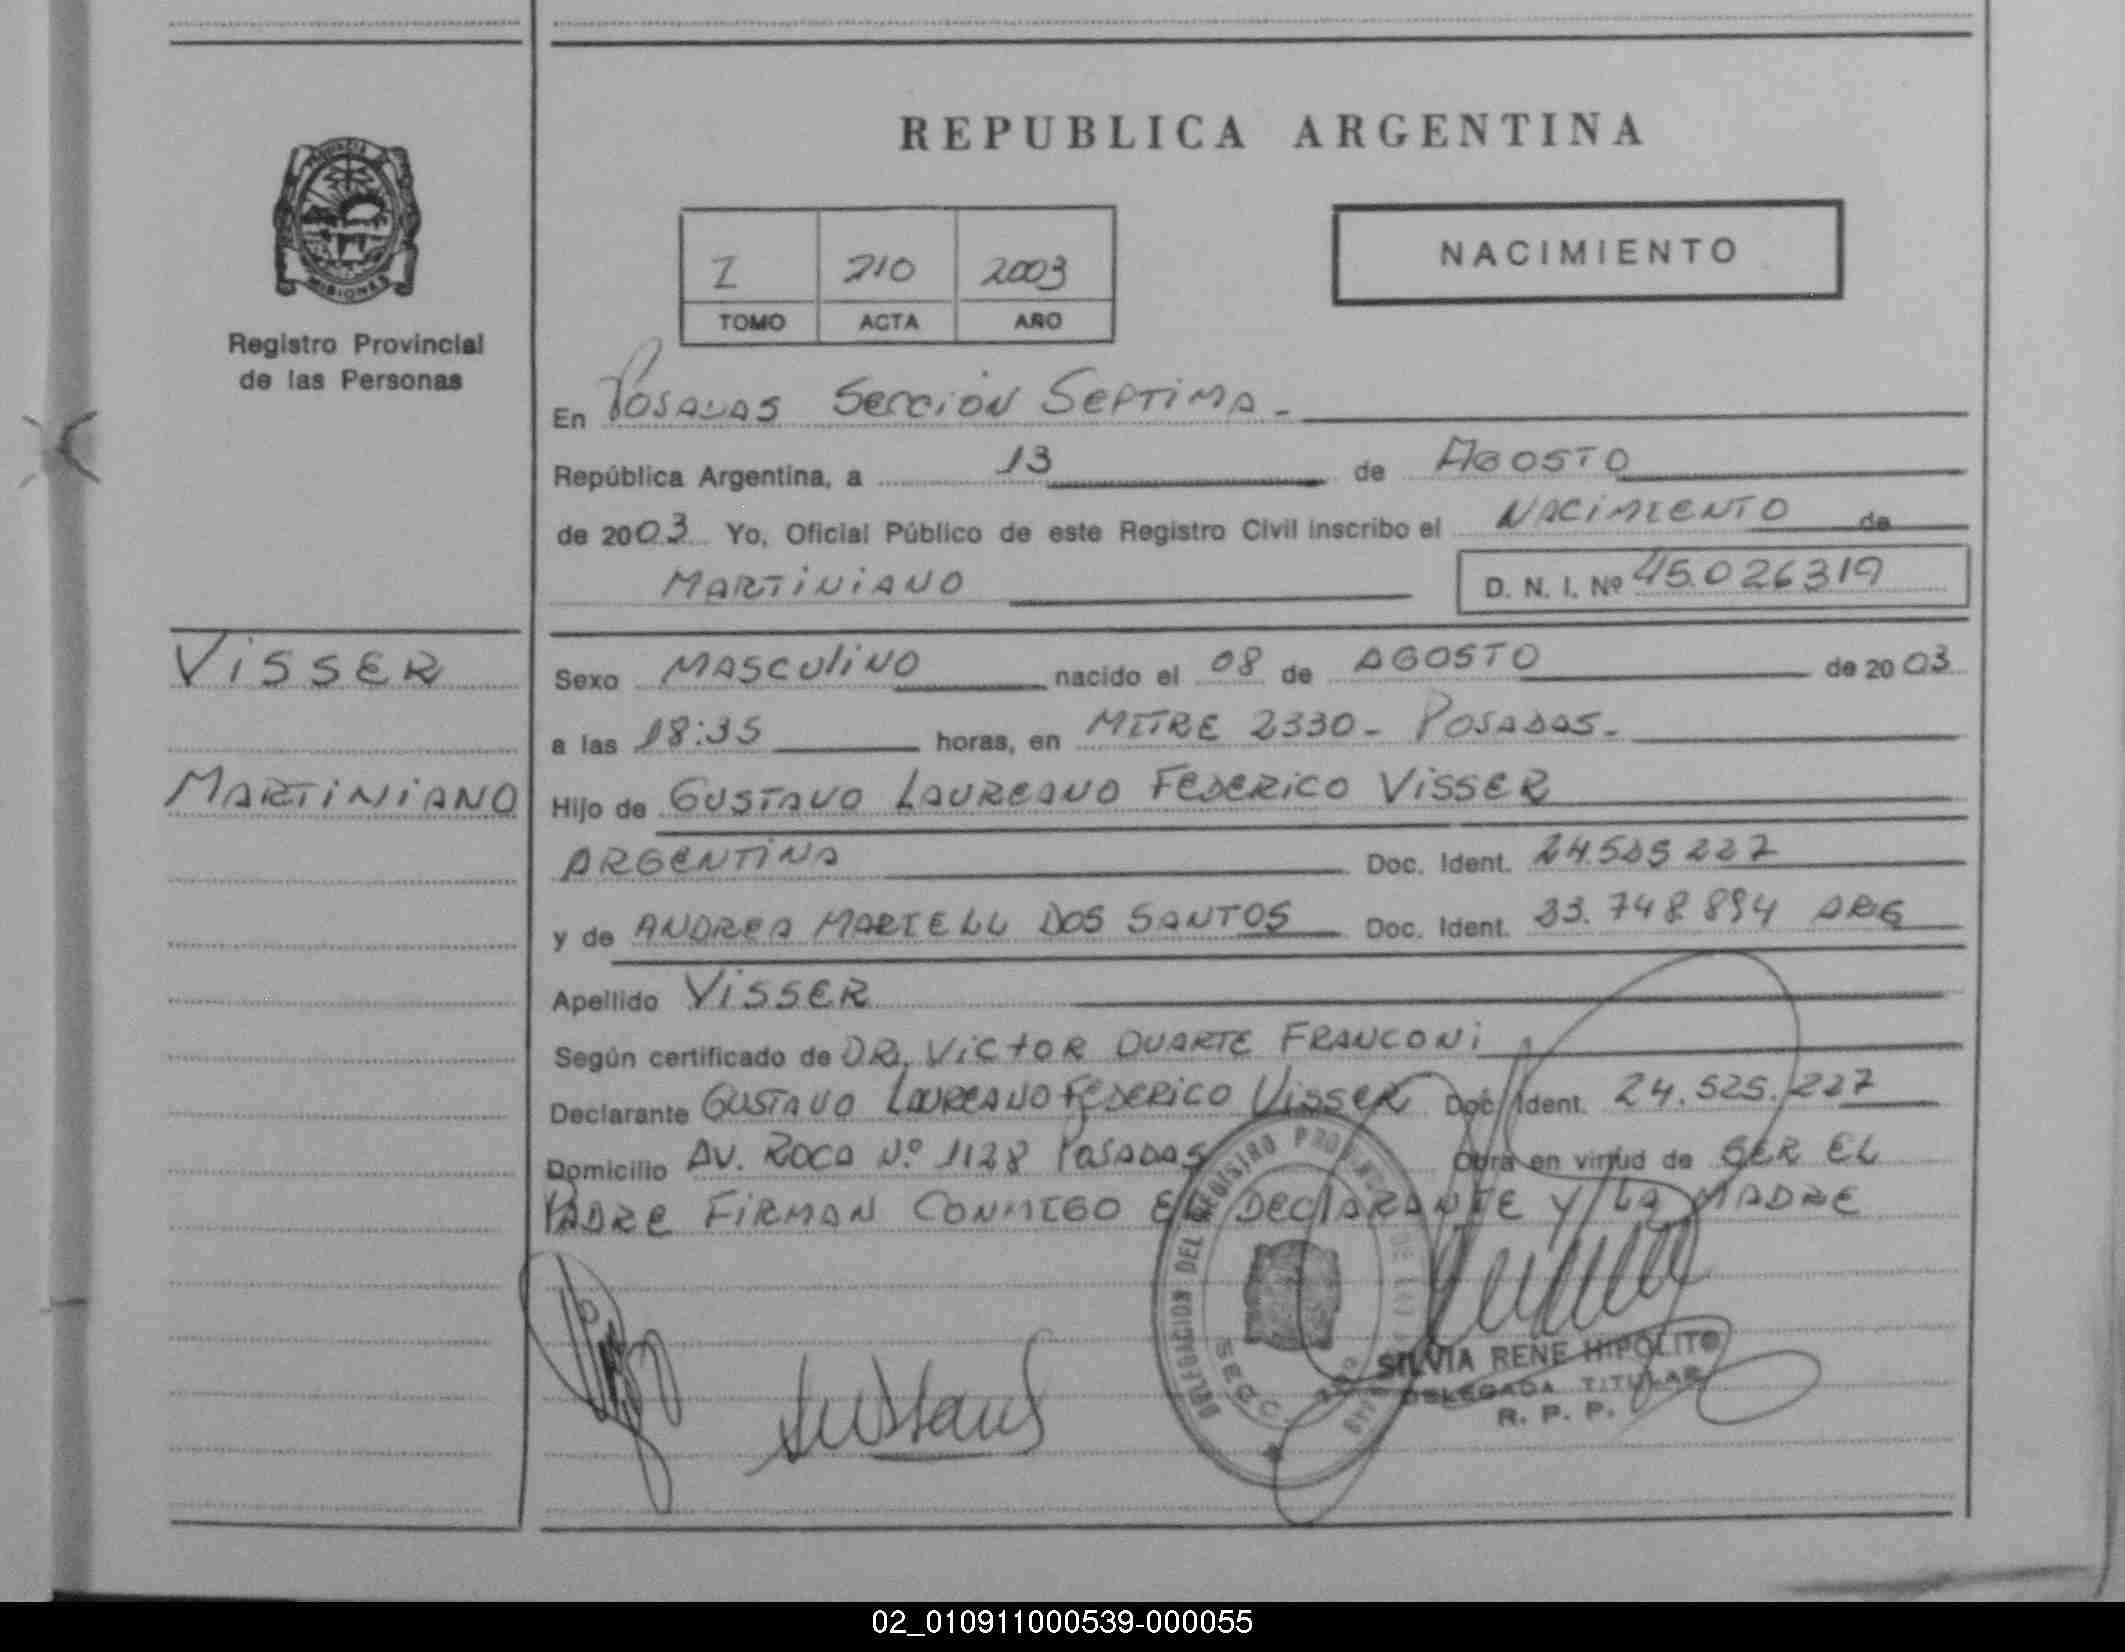 REPUBLICA ARGENTINA
PROVINCIA DE
MISIONES
Registro Provincial
de las Personas
I 210 2003
TOMO ACTA AÑO
NACIMIENTO
En POSADAS SECCION SEPTIMA.-
República Argentina, a 13 de AGOSTO
de 2003 Yo, Oficial Público de este Registro Civil inscribo el NACIMIENTO de
MARTINIANO D. N. I. Nº 45.026319
VISSER
MARTINIANO
Sexo MASCULINO nacido el 08 de AGOSTO de 2003
a las 18:35 horas, en MITRE 2330- POSADAS.-
Hijo de GUSTAVO LAUREANO FEDERICO VISSER
ARGENTINA Doc. Ident. 24.525 227
y de ANDREA MARIELL DOS SANTOS Doc. Ident. 33.748 894 ARG
Apellido VISSER
Según certificado de DR. VICTOR DUARTE FRANCONI
Declarante GUSTAVO LAUREANO FEDERICO VISSER Doc. Ident. 24.525.227
Domicilio AV. ROCA Nº 1128 POSADAS Obra en virtud de SER EL
PADRE FIRMAN CONMIGO EL DECLARANTE Y LA MADRE
DELEGACION DEL REGISTRO
SECC.
SILVIA RENE HIPOLITO
DELEGADA TITULAR
R. P. P.
02_010911000539-000055